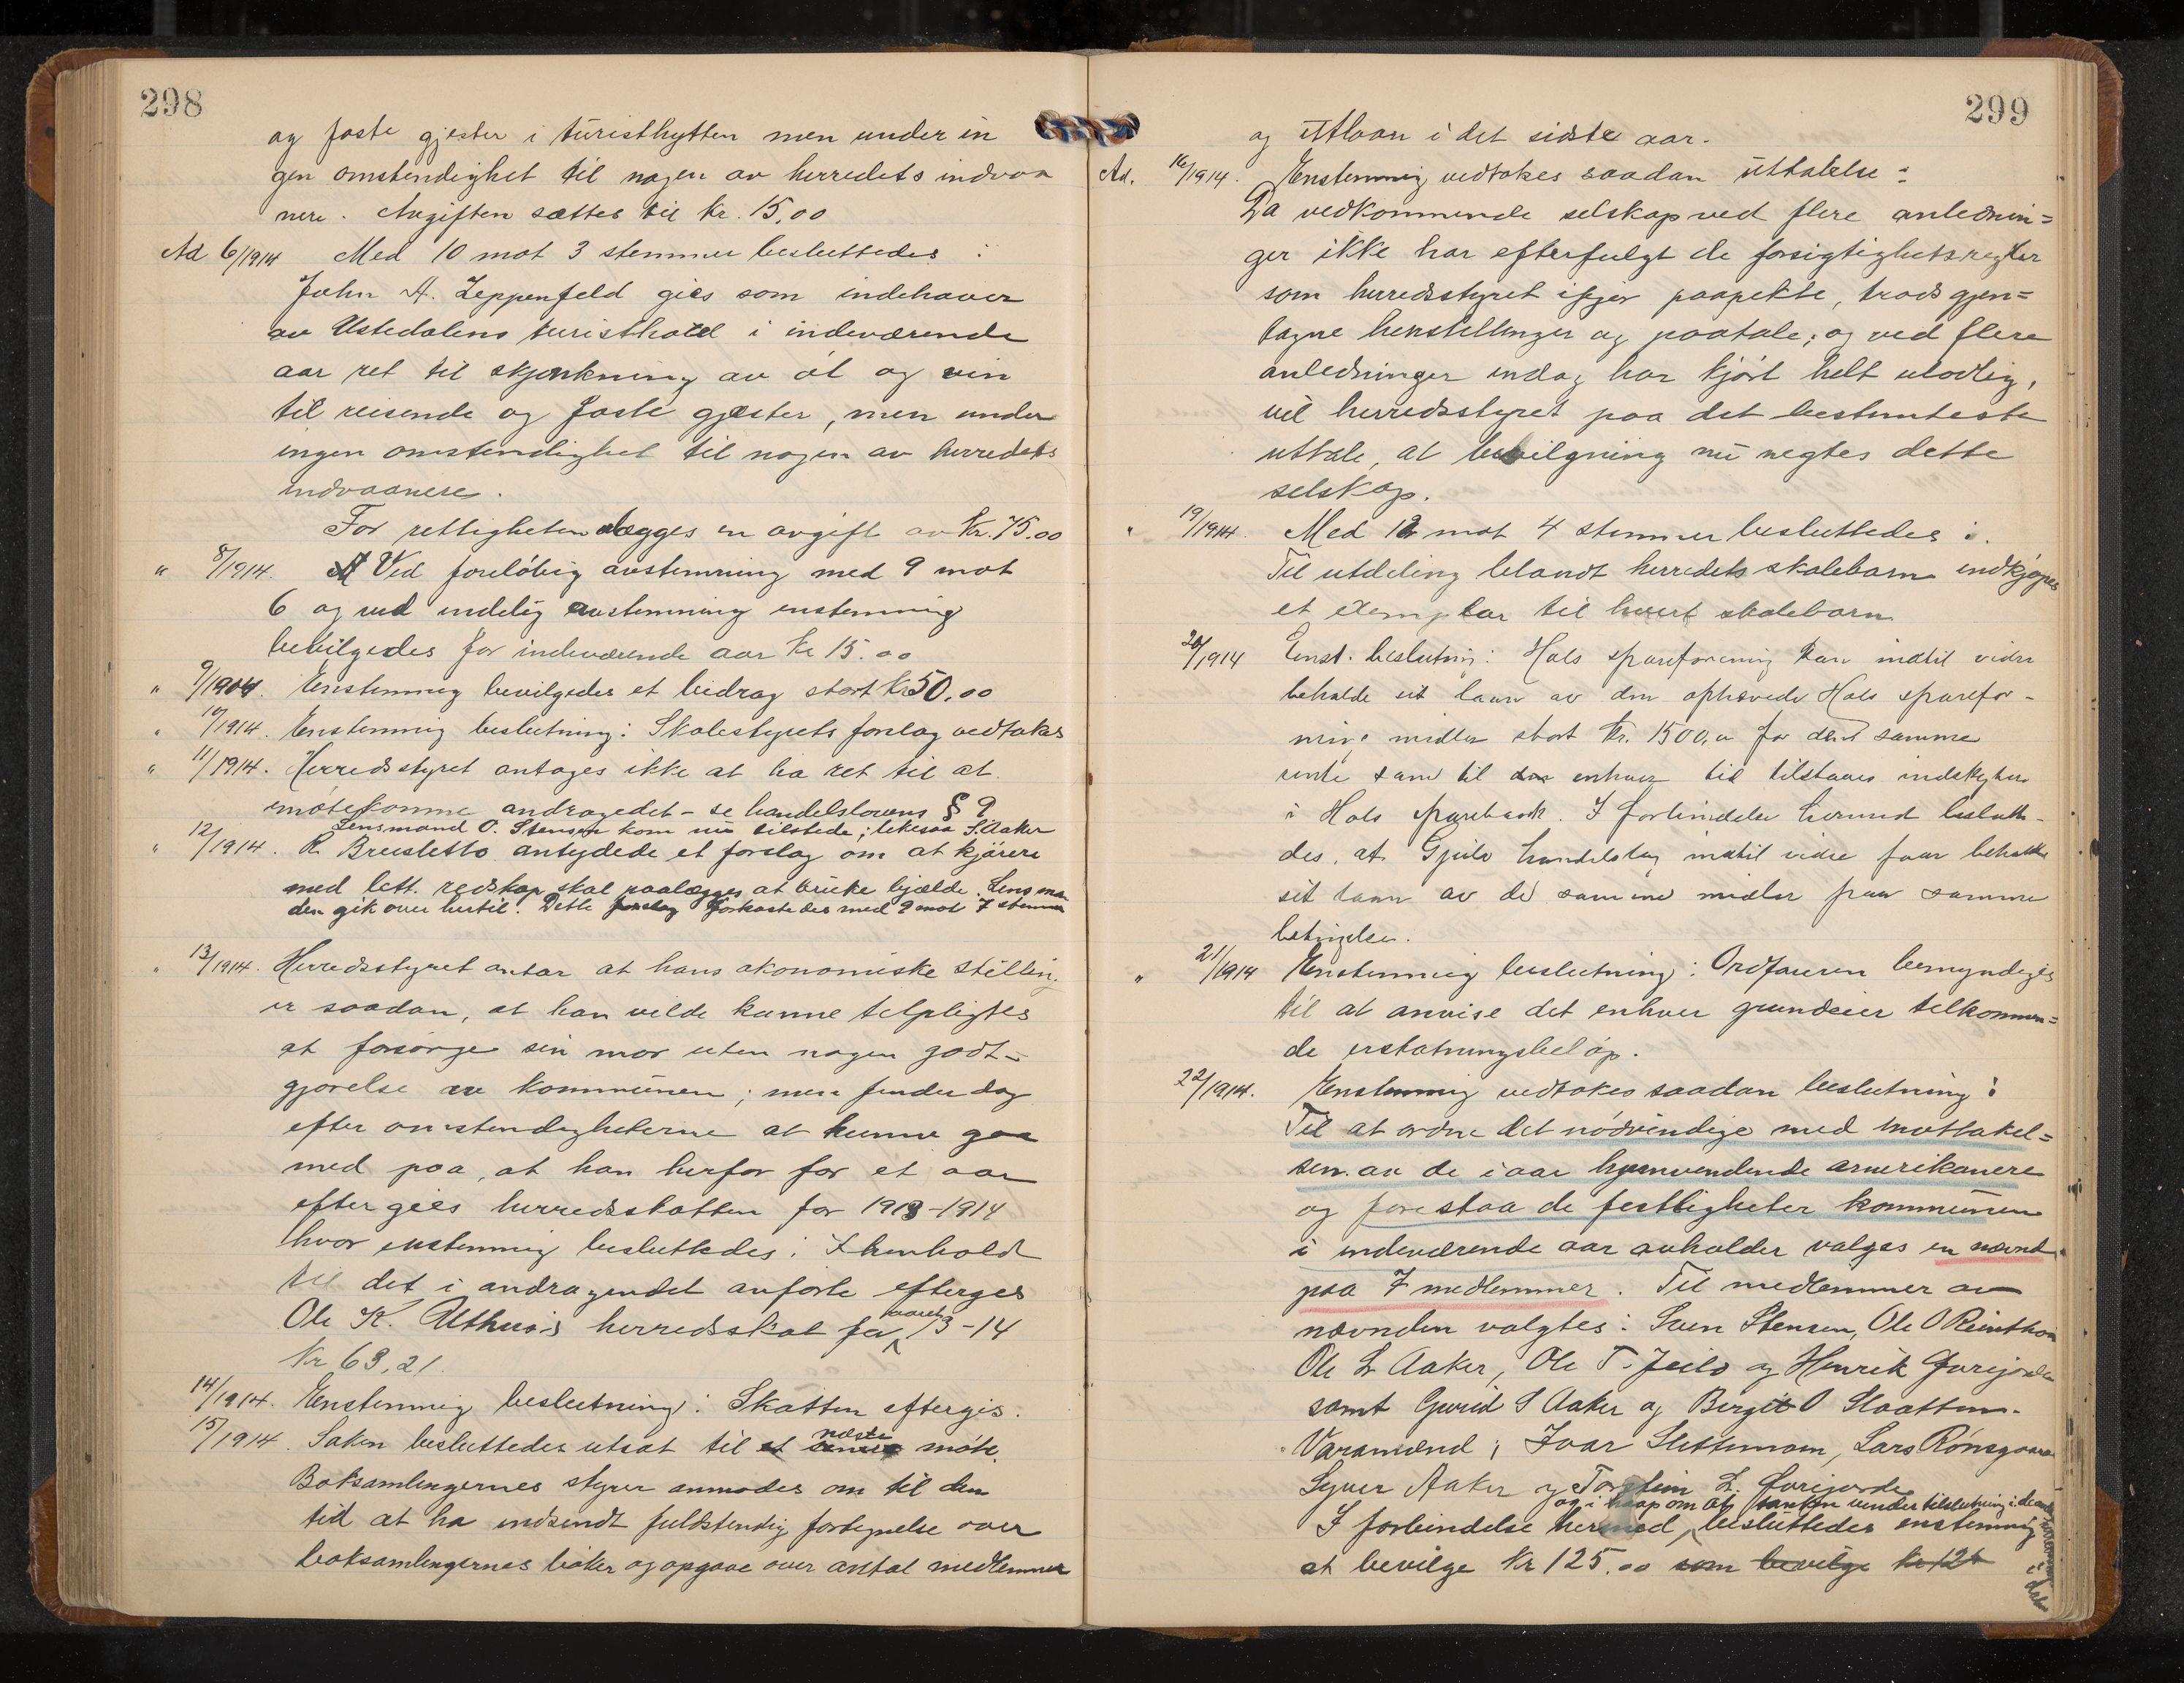 298
og faste gjester i turisthytten men under in
gen omstendighet til nogen av herredets indvaa
nere. Avgiften sættes til kr. 15,00
Ad 6/1914 Med 10 mot 3 stemmer besluttedes :
John A. Zeppenfeld gies som indehaver
av Ustedalens turisthotel i indeværende
aar ret til skjænkning av øl og vin
til reisende og faste gjester, men under
ingen omstendighet til nogen av herredets
indvaanere.
For rettigheten ilægges en avgift av kr. 75.00
" 8/1914. Ved foreløbig avstemning med 9 mot
6 og ved endelig avstemning enstemmig
bevilgedes for indeværende aar kr 15.00
" 9/1914. Enstemmig bevilgedes et bidrag stort kr 50,00
" 10/1914. Enstemmig beslutning: Skolestyrets forslag vedtakes
" 11/1914. Herredsstyret antages ikke at ha ret til at
imøtekomme andragedet - se handelslovens § 9
Lensmand O. Stensen kom nu tilstede; likesaa S. Aaker
" 12/1914. K. Breiesletto antydede et forslag om at kjørere
med lett redskap skal paalægges at bruke bjælde. Lensman
den gik over hertil. Dette forslag forkastedes med 9 mot 7 stemmer
" 13/1914. Herredsstyret antar at hans økonomiske stilling
er saadan, at han vilde kunne tilpligtes
at forsørge sin mor uten nogen godt-
gjørelse av kommunen; men finder dog
efter omstendigheterne at kunne gaa
med paa, at han herfor for et aar
eftergies herredsskatten for 1913-1914
hvor enstemmig besluttedes: I henhold
til det i andragendet anførte efterges
Ole K. herredsskat for aaret 13-14
Kr 63,21.
14/1914. Enstemmig beslutning: Skatten eftergis.
15/1914. Saken besluttedes utsat til et næste møte.
Boksamlingernes styrer anmodes om til den
tid at ha indsendt fuldstendig fortegnelse over
boksamlingernes bøker og opgave over antal medlemmer
299
og utlaan i det sidste aar.
Ad. 16/1914. Enstemmig vedtakes saadan uttalelse :
Da vedkommende selskap ved flere anlednin=
ger ikke har efterfulgt de forsigtighetsregler
som herredsstyret ifjor paapekte, trods gjen=
tagne henstillinger og paatale; og ved flere
anledninger endog har kjørt helt ulovlig,
vil herredsstyret paa det bestemteste
uttale, at bevilgning nu negtes dette
selskap.
" 19/1914. Med 12 mot 4 stemmer besluttedes :
Til utdeling blandt herredets skolebarn indkjøpes
et exemplar til hvert skolebarn
20/1914 Enst. beslutning: Hols spareforening kan indtil videre
beholde sit laan av den ophævede Hols sparefor-
nings midler stort kr. 1500,00 for den samme
rente som til enhver tid tilstaaes indskytere
i Hols Sparebank. I forbindelse hermed beslutte-
des, at Geilo handelslag indtil videre faar beholde
sit laan av de samme midler paa samme
betingelser.
" 21/1914 Enstemmig beslutning: Ordføreren bemyndiges
til at anvise det enhver grundeier tilkommen=
de erstatningsbeløp.
22/1914. Enstemmig vedtakes saadan beslutning :
Til at ordne det nødvendige med mottakel=
sen av de i aar hjemvendende amerikanere
og forestaa de festligheter kommunen
i indeværende aar avholder valges en nævnd
paa 7 medlemmer. Til medlemmer av
nævnden valgtes: Sven Stensen, Ole O Reinton
Ole L Aaker, Ole T. Jeilo og Henrik Furejorde
samt Guvid S Aaker og Birgit O Slaatten.
Varamænd: Ivar Slettemoen, Lars Rønsgaard
Syver Aaker og Torstein L. Furejorde
og i haap om at tanken vinder tilslutning i de andre
I forbindelse hermed, besluttedes enstemmig
at bevilge kr 125.00 som bevilge kr 125